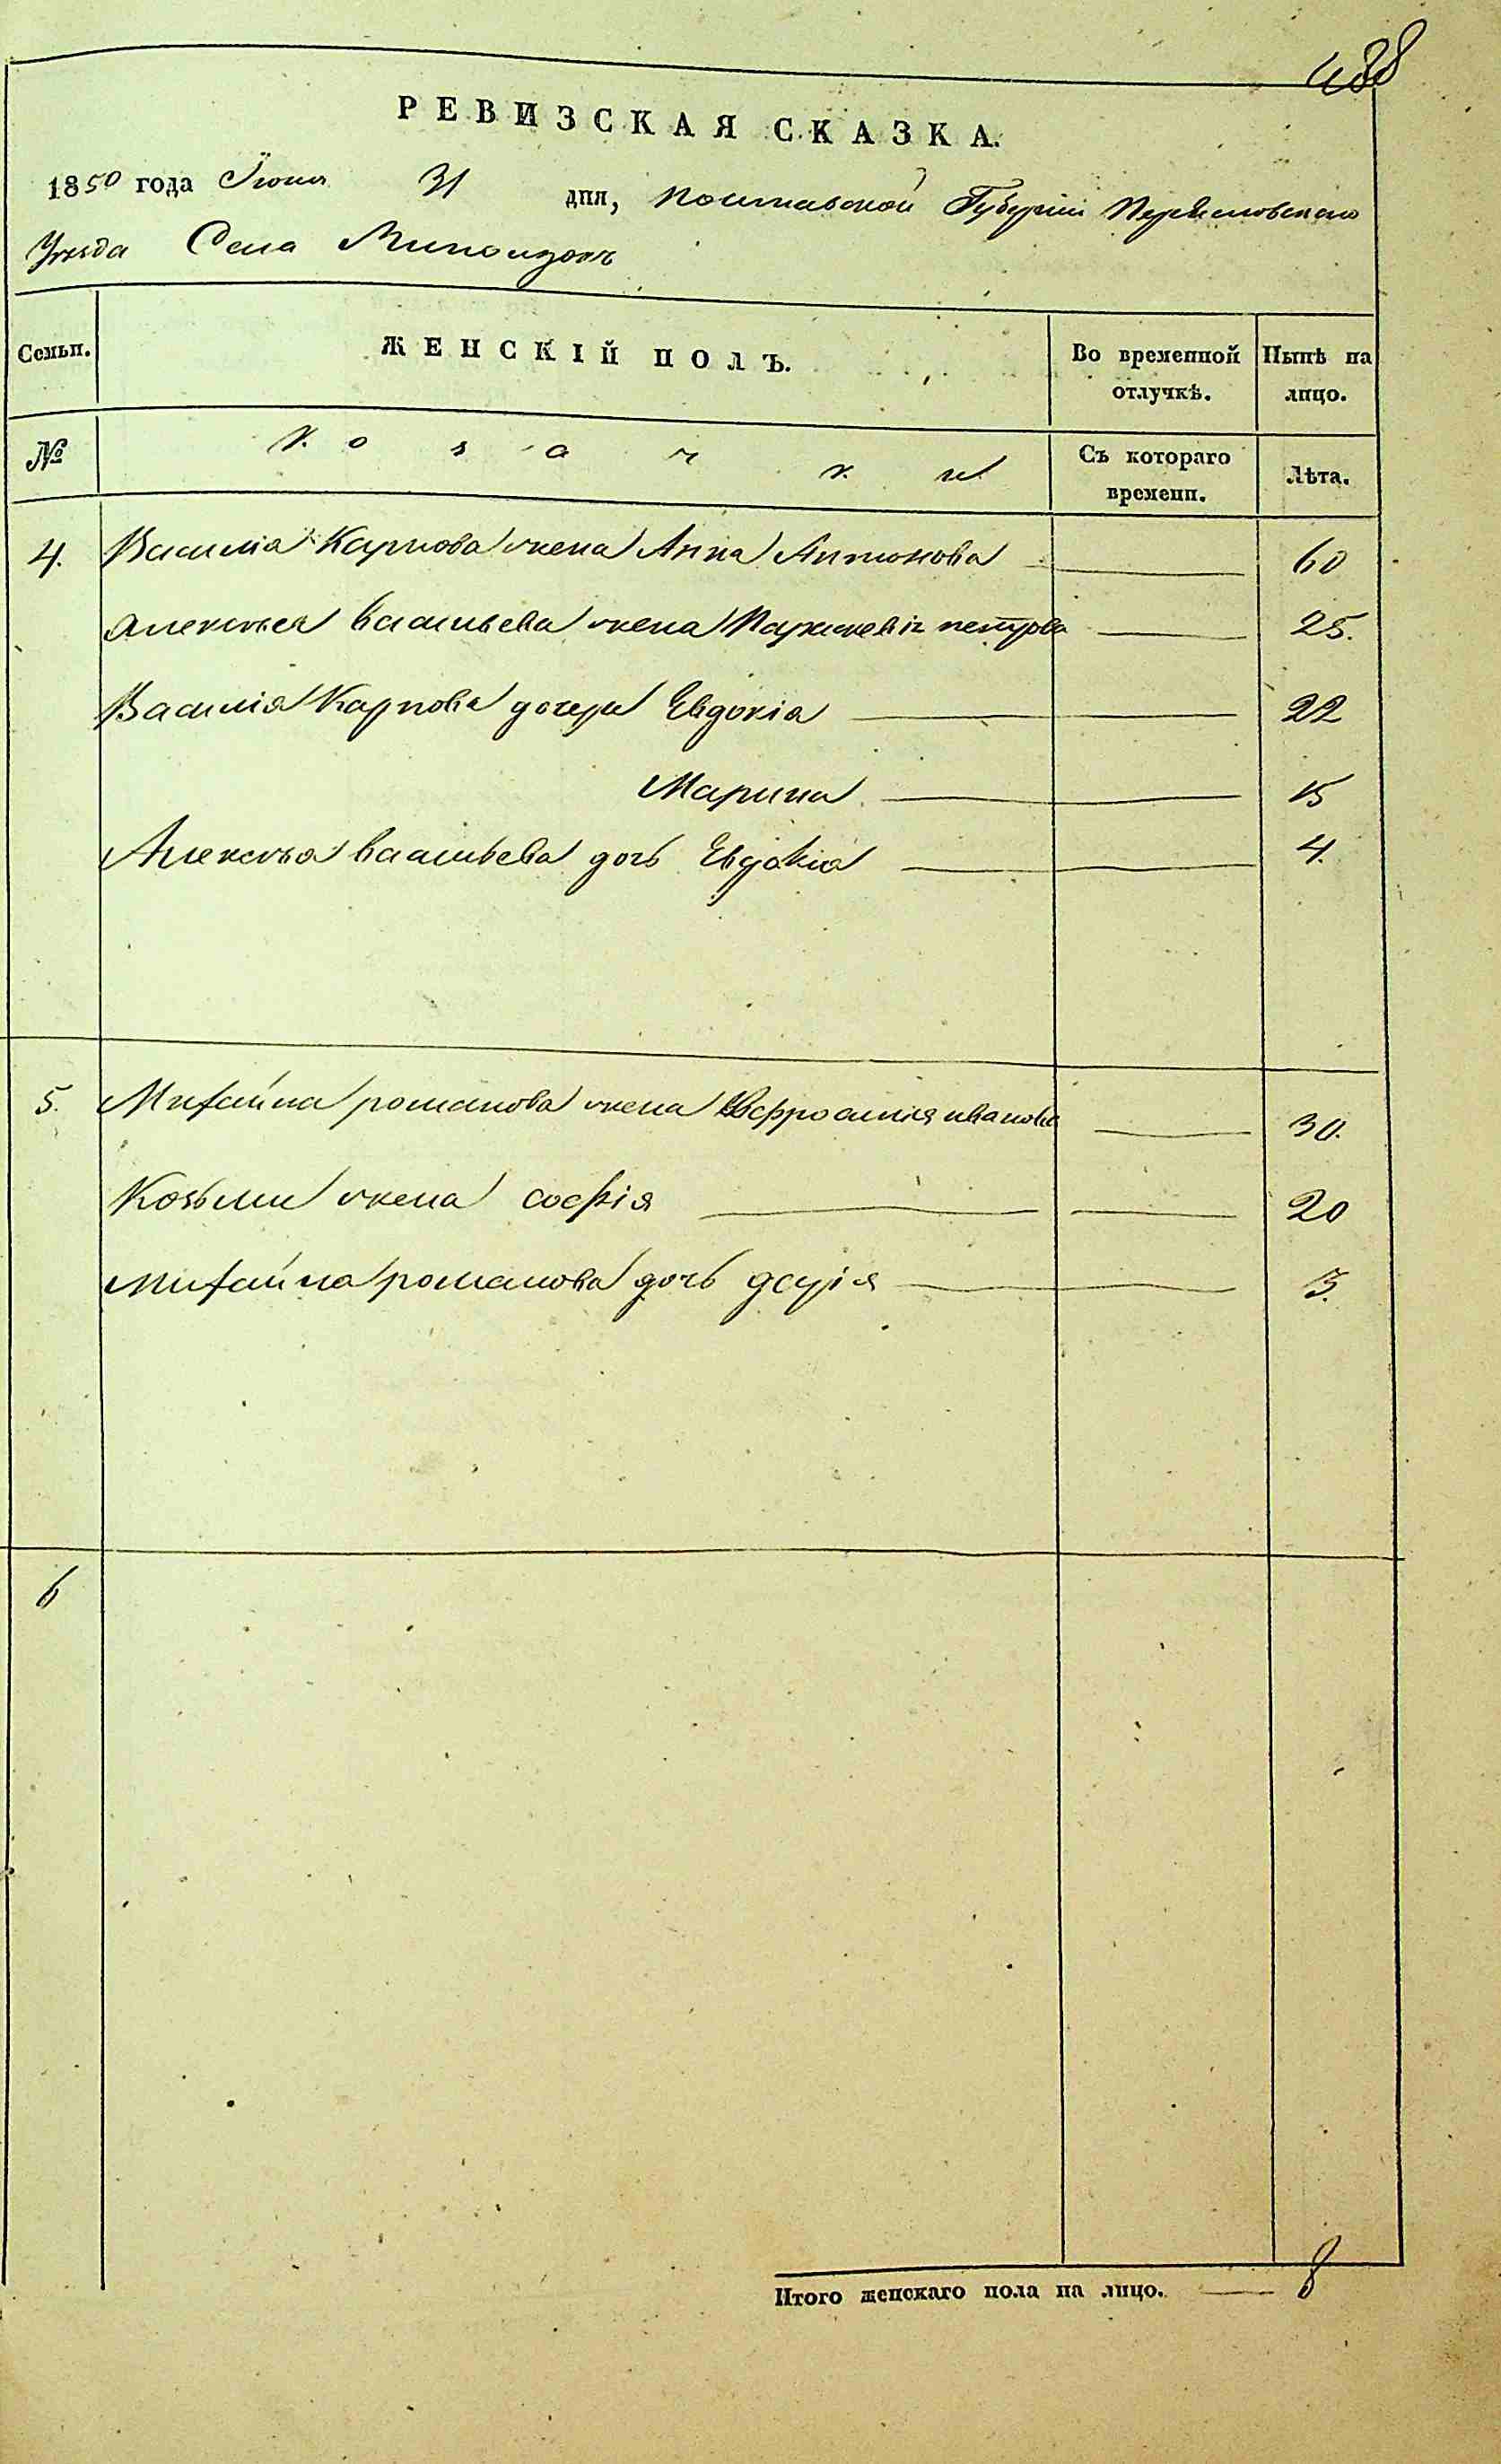 438
РЕВИЗСКАЯ СКАЗКА.
1850 года Іюня 31 дня, Полтавской Губерніи Переяславскаго
Уезда Села
Семьи. ЖЕНСКІЙ ПОЛЪ. Во временной отлучкѣ. Нынѣ на лицо.
№ Козачки Съ котораго времени. Лѣта.
4. Василія Карпова жена Анна Антонова 60
Алексѣя Васильева жена Параскевія петрова 25.
Василія Карпова дочери Евдокія 22
Марина 15
Алексѣя васильева дочь Евдокія 4.
5. Михайла романова жена Ефросинія иванова 30.
Козьмы жена софія 20
михайла романова дочь дарія 3.
6
Итого женскаго пола на лицо. 8